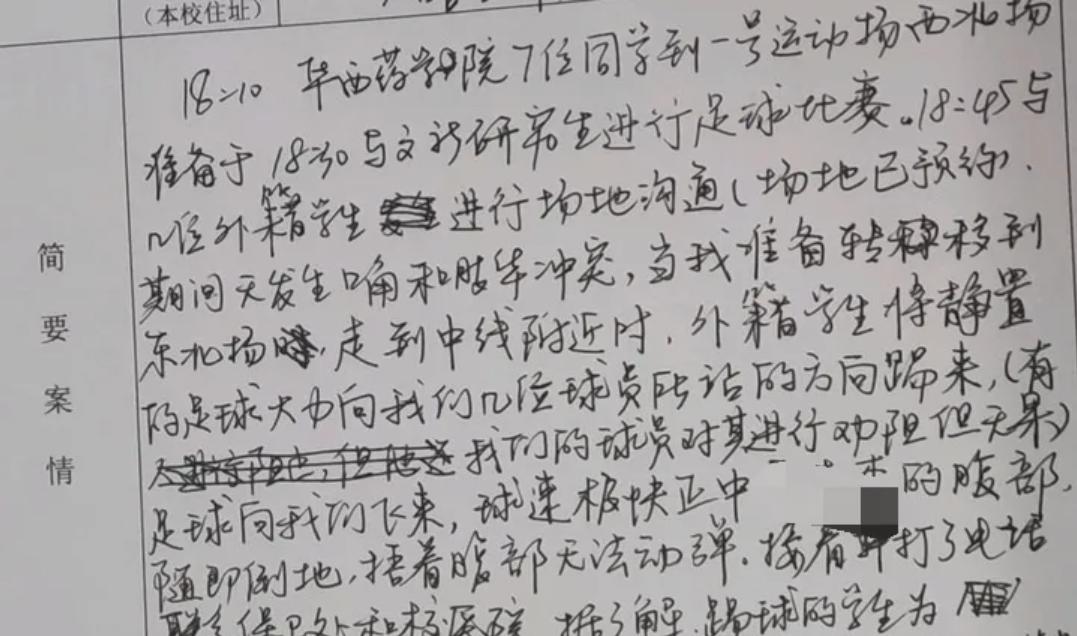 （本校住址）
简要案情
18:10 华西药学院7位同学到一号运动场西北场
准备于18:30与文新研究生进行足球比赛。18:45与
几位外籍学生进行场地沟通（场地已预约）.
期间无发生口角和肢体冲突，当我准备转移到
东北场，走到中线附近时，外籍学生将静置
的足球大力向我们几位球员所站的方向踢来，（有
我们的球员对其进行劝阻但无果）
足球向我们飞来，球速极快正中 的腹部，
随即倒地，捂着腹部无法动弹.接着打了电话
联系保卫处和校医院.据了解,踢球的学生为